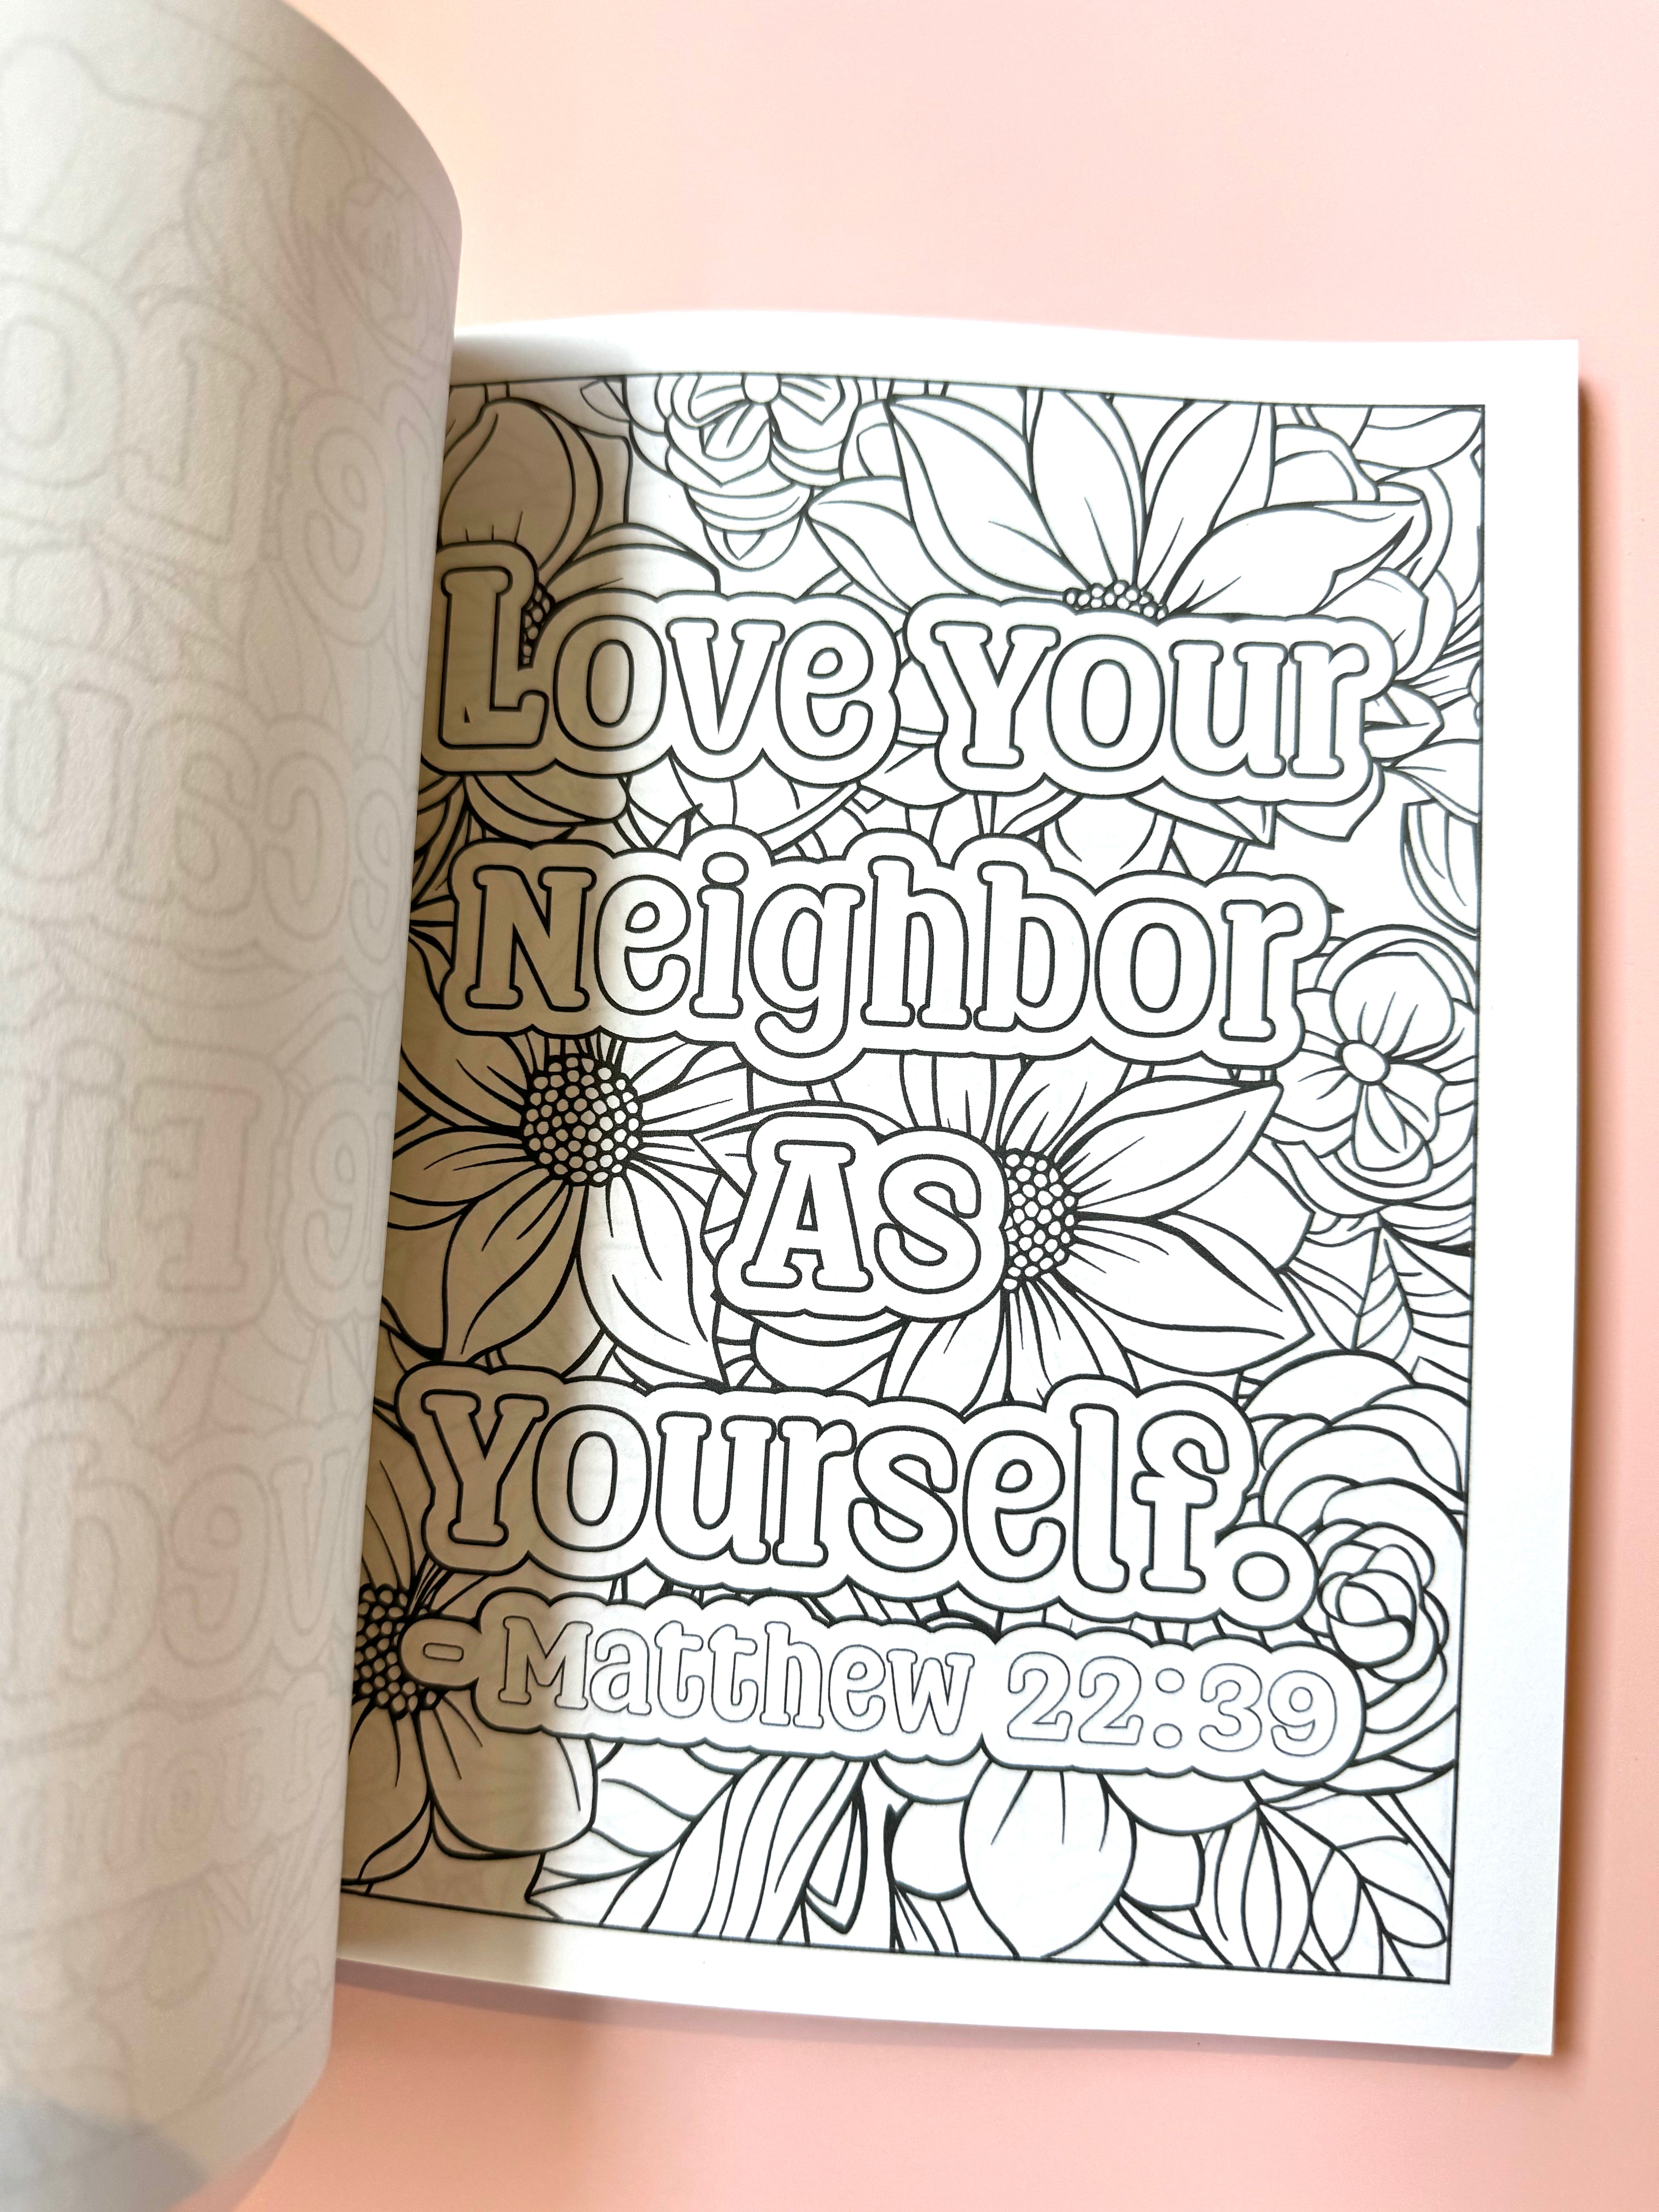 Love Your
Neighbor
As
Yourself.
- Matthew 22:39